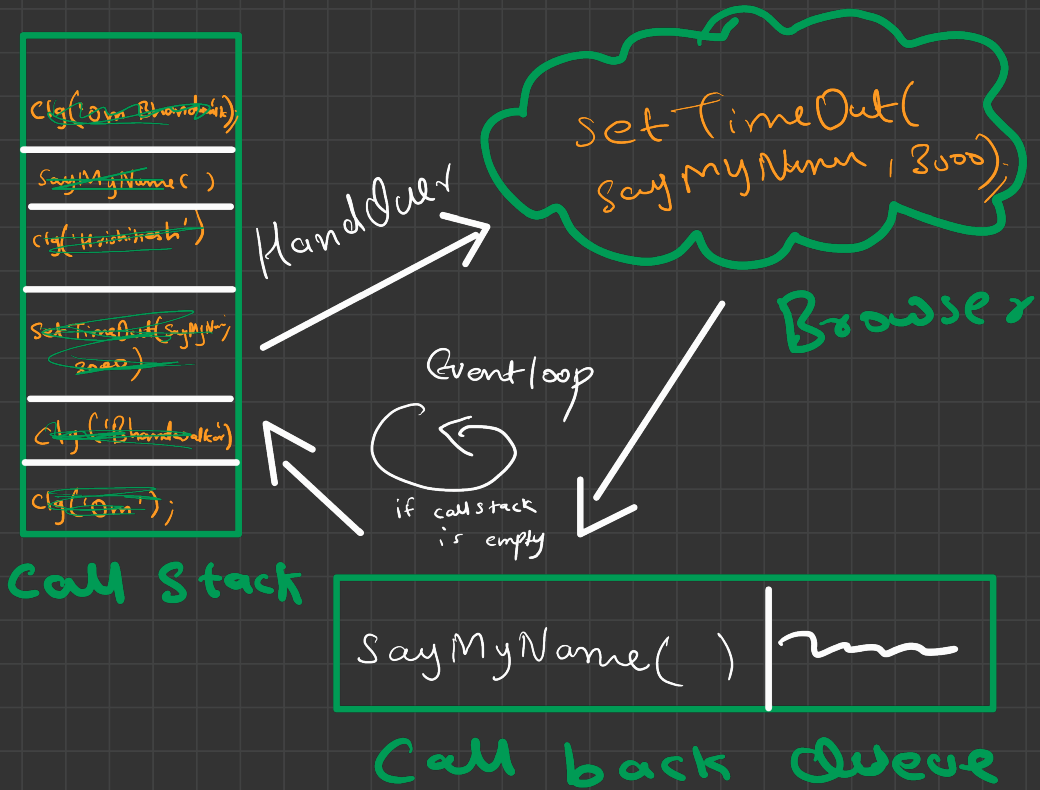 Clg('Om Bhandwalk');
SayMyName( )
Clg('Hrishikesh')
Set TimeOut(SayMyNm,
3000)
Clg('Bhandwalkar')
Clg('Om');
Call Stack
HandOver
SetTimeOut(
SayMyName , 3000);
Browser
Eventloop
if callstack
is empty
SayMyName( )
Call back Queue